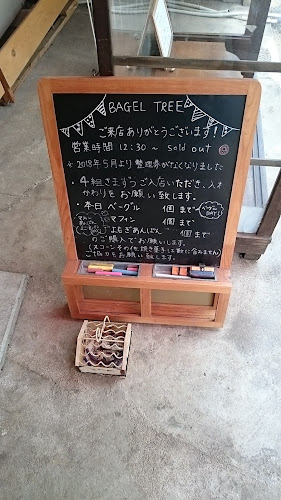 BAGEL TREE
ご来店ありがとうございます!
営業時間 12:30 ~ sold out
※2018年5月より整理券がなくなりました
・4組さまずつご入店いただき、入れ
かわりをお願い致します。
・本日 ベーグル 個まで
マフィン 個まで
よもぎあんぱん 個まで
のご購入でお願いします。
(スコーンその他焼き菓子は数に含みません)
ご協力をお願い致します。